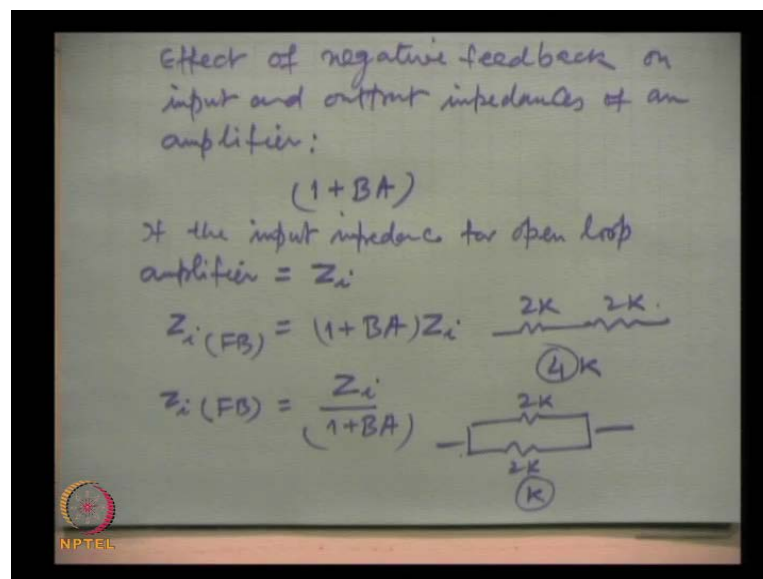 Effect of negative feedback on
input and output impedances of an
amplifier:
(1 + BA)
If the input impedance for open loop
amplifier = Zi
Zi (FB) = (1 + BA) Zi
2K 2K
4 K
Zi (FB) = Zi / (1 + BA)
2K
2K
K
NPTEL